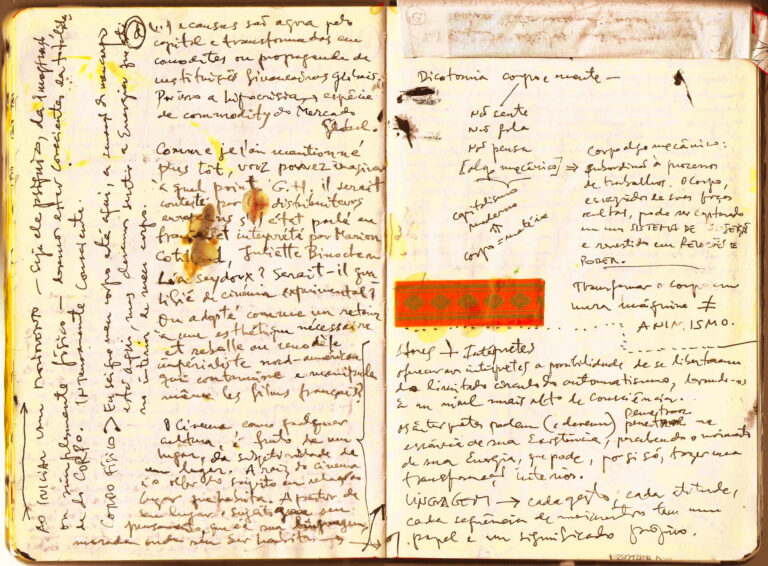 (2)
(...) e causas são agora pelo
capital e transformadas em
comodites ou propaganda de
instituições financeiras globais.
Por isso a hipocrisia, espécie
de commodity do Mercado
Global.
Comme je l'ai mentionné
plus tôt, vous pouvez imaginer
à quel point G.H. il serait
par distributeurs
s'il était parlé en
français et interprété par Marion
Cotillard, Juliette Binoche ou
Léa Seydoux? Serait-il qua
lifié de cinéma expérimental?
Ou adopté comme un retour
à une esthétique nécessaire
et rebelle au
impérialiste nord-américain
qui contamine e manipule
même les films français?
O Cinema como qualquer
cultura, é fruto de um
lugar, da subjetividade de
um lugar. A raiz do cinema
é o sujeito em relação
lugar que habita. A partir de
seu lugar o sujeito gera seu
pensamento, que é sua linguagem
morada onde seu ser habita.
Ao iniciar um movimento — seja ele psíquico, da imaginação
ou simplesmente físico — devemos estar conscientes
e do CORPO. Internamente consciente.
CORPO FÍSICO > Eu trago meu corpo até aqui, a
está aqui, mas devemos sentir a Energia
no interior de meu corpo.
Dicotomia corpo e mente —
Não sente
Não fala
Não pensa
[algo mecânico] →
capitalismo
moderno
corpo = matéria
Corpo algo mecânico:
subordinado à processos
de trabalho. O corpo,
esvaziado de suas forças
ocultas, pode ser capturado
em um SISTEMA DE SUJEIÇÃO
e revestido em RELAÇÕES DE
PODER.
Transformar o corpo em
uma máquina ≠
ANIMISMO.
Intérpretes
oferecer aos intérpretes a possibilidade de se libertarem
do limitado círculo do automatismo, levando-os
a um nível mais alto de Consciência.
Os intérpretes podem (e devem) penetrar na
essência de sua Existência, percebendo o movimento
de sua Energia, que pode, por si só, trazer uma
transformação interior.
LINGUAGEM → cada gesto, cada atitude,
cada sequência de movimentos tem um
papel e um significado próprio.